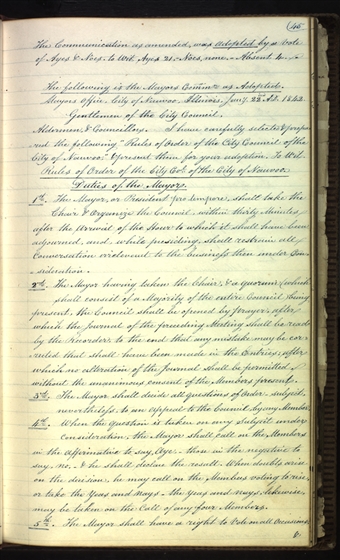 45
The Communication as amended, was adopted by a Vote
of Ayes & Noes. to Wit. Ayes 21 - Noes, none - Absent 4.
The following is the Mayors Comtn as Adopted.
Mayors Office, City of Nauvoo. Illinois. Jany. 22nd A.D. 1842.
Gentlemen of the City Council.
Aldermen, & Councillors. - I have carefully selected & prepa-
-red the following "Rules of Order of the City Council of the
City of Nauvoo." & present them for your adoption. To Wit.
Rules of Order of the City Col. of the City of Nauvoo.
Duties of the Mayor.
1st. The Mayor, or President pro tempore, shall take the
Chair & Organize the Council, within thirty Minutes
after the arrival of the Hour to which it shall have been
adjourned, and, while presiding, shall restrain all
Conversation irrelevant to the business then under Con-
-sideration.
2nd. The Mayor having taken the Chair, & a quorum (which
shall consist of a Majority of the entire Council) being
present, the Council shall be opened by prayer, after
which the Journal of the preceding Meeting shall be read
by the Recorder, to the end that any mistake may be cor-
ruled that shall have been made in the Entries; after
which no alteration of the Journal shall be permitted,
without the unanimous consent of the Members present.
3rd. The Mayor shall decide all questions of Order - subject,
nevertheless to an appeal to the Council by any Member.
4th. When the question is taken on any Subject under
Consideration, the Mayor shall call on the Members
in the affirmative to say, Aye, - those in the negative to
say, no, - & he shall declare the result. When doubts arise
on the decision, he may call on the Members voting to rise,
or take the Yeas and Nays - the yeas and nays, likewise,
may be taken on the Call of any four Members.
5th. The Mayor shall have a right to Vote on all Occasions;